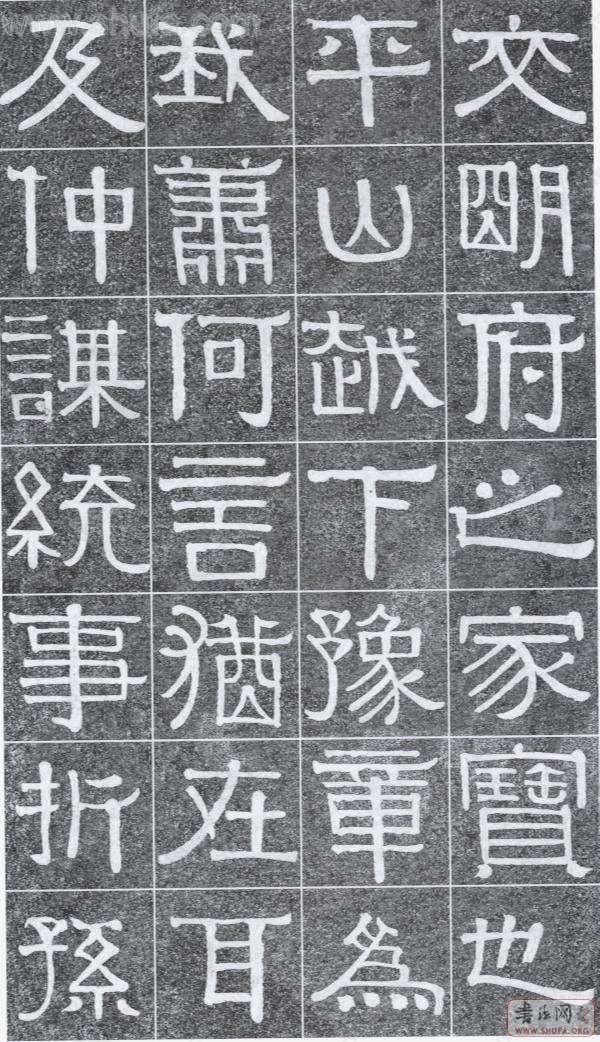 文明府之家寶也
平山越下豫章為
我蕭何言猶在耳
及仲謀統事折孫
书法网
WWW.SHUFA.ORG